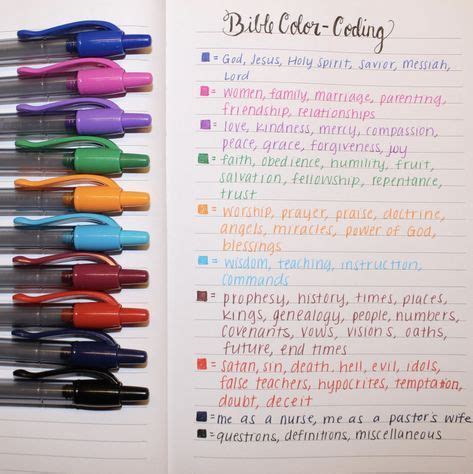 Bible Color-Coding
= God, Jesus, Holy Spirit, Savior, Messiah,
Lord
= women, family, marriage, parenting,
friendship, relationships
= love, kindness, mercy, compassion,
peace, grace, forgiveness, joy
= faith, obedience, humility, fruit,
salvation, fellowship, repentance,
trust
= worship, prayer, praise, doctrine,
angels, miracles, power of God,
blessings
= wisdom, teaching, instruction,
commands
= prophesy, history, times, places,
kings, genealogy, people, numbers,
covenants, vows, visions, oaths,
future, end times
= satan, sin, death, hell, evil, idols,
false teachers, hypocrites, temptation,
doubt, deceit
= me as a nurse, me as a pastor's wife
= questions, definitions, miscellaneous